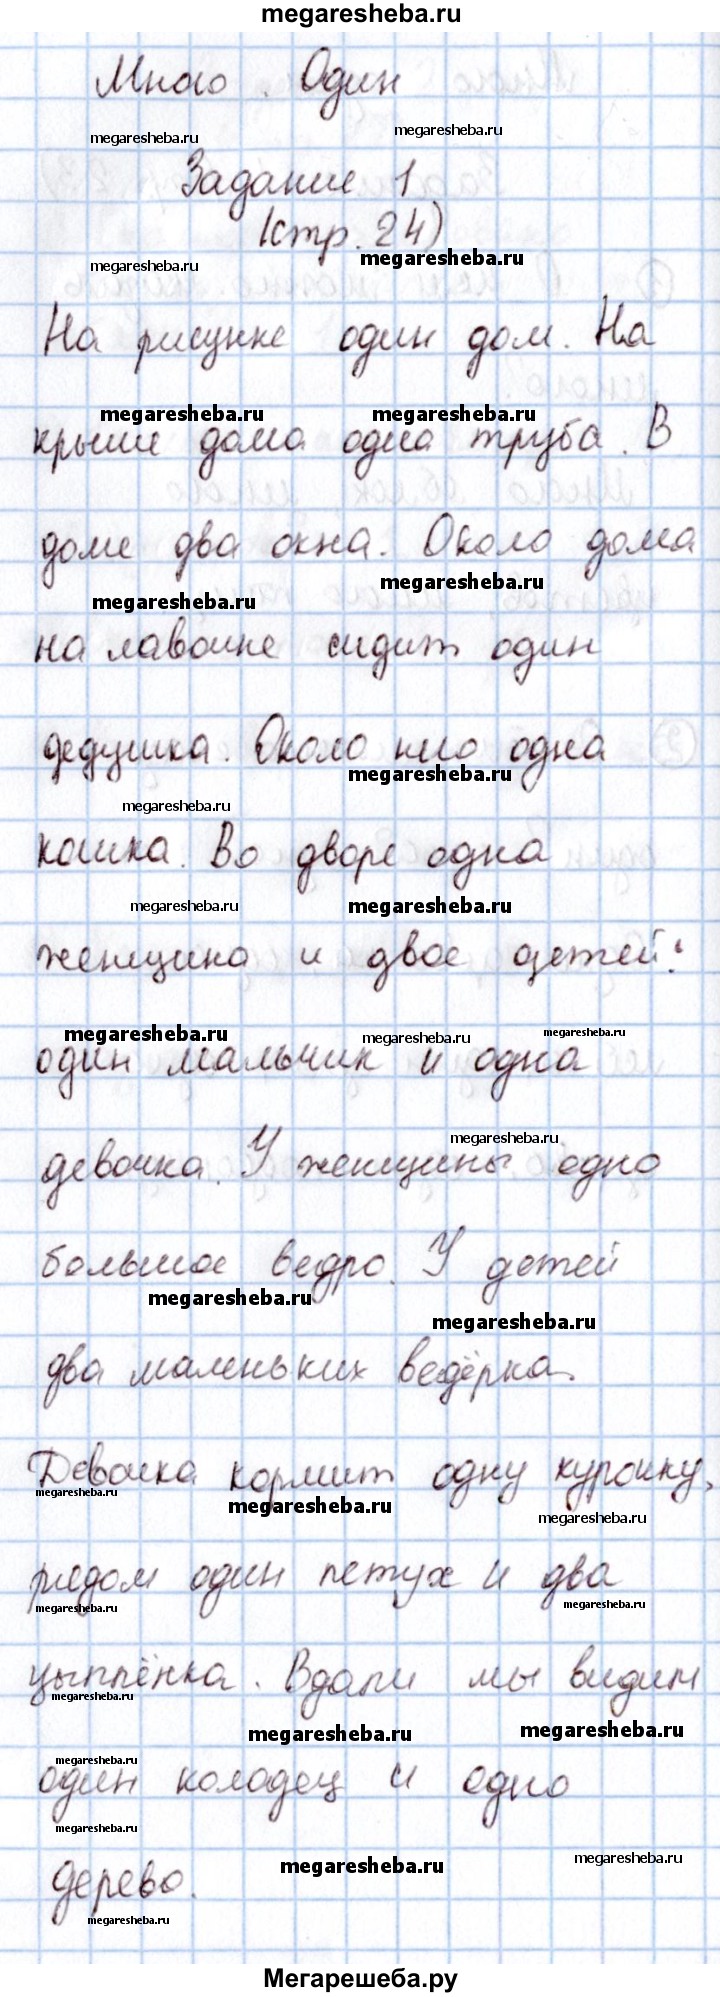 megaresheba.ru
Много. Один
megaresheba.ru megaresheba.ru
Задание 1
(стр. 24)
megaresheba.ru megaresheba.ru
На рисунке один дом. На
megaresheba.ru megaresheba.ru
крыше дома одна труба. В
доме два окна. Около дома
megaresheba.ru megaresheba.ru
на лавочке сидит один
дедушка. Около него одна
megaresheba.ru megaresheba.ru
кошка. Во дворе одна
megaresheba.ru megaresheba.ru
женщина и двое детей:
megaresheba.ru megaresheba.ru megaresheba.ru
один мальчик и одна
megaresheba.ru
девочка. У женщины одно
большое ведро. У детей
megaresheba.ru megaresheba.ru
два маленьких ведёрка.
Девочка кормит одну курочку,
megaresheba.ru megaresheba.ru megaresheba.ru
рядом один петух и два
megaresheba.ru megaresheba.ru
цыплёнка. Вдали мы видим
megaresheba.ru megaresheba.ru megaresheba.ru
megaresheba.ru
один колодец и одно
megaresheba.ru megaresheba.ru megaresheba.ru
дерево.
megaresheba.ru
Мегарешеба.ру